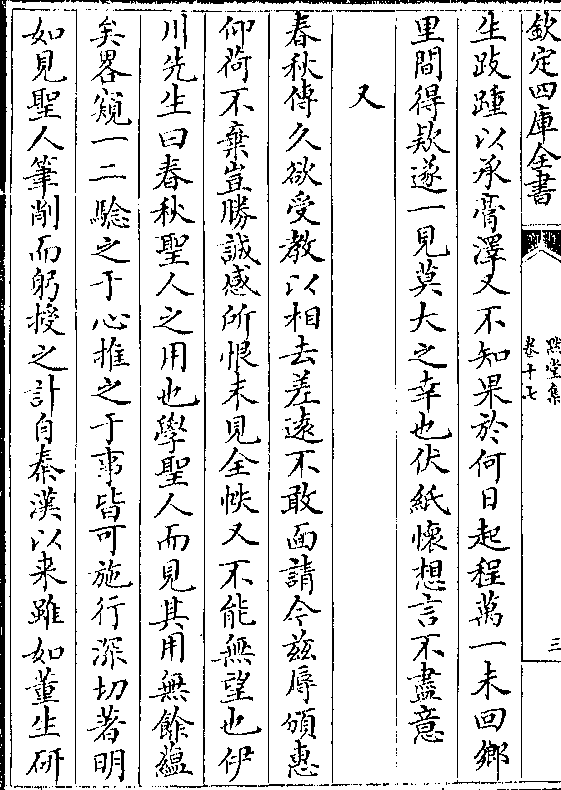 欽定四庫全書
默堂集
卷十七
三
生跂踵以承膏澤又不知果於何日起程萬一未回鄉
里間得欵遂一見莫大之幸也伏紙懷想言不盡意
又
春秋傳久欲受教以相去差遠不敢面請今兹辱頒惠
仰荷不棄豈勝誠感所恨未見全帙又不能無望也伊
川先生曰春秋聖人之用也學聖人而見其用無餘蘊
矣畧窺一二驗之于心推之于事皆可施行深切著明
如見聖人筆削而躬授之計自秦漢以来雖如董生研